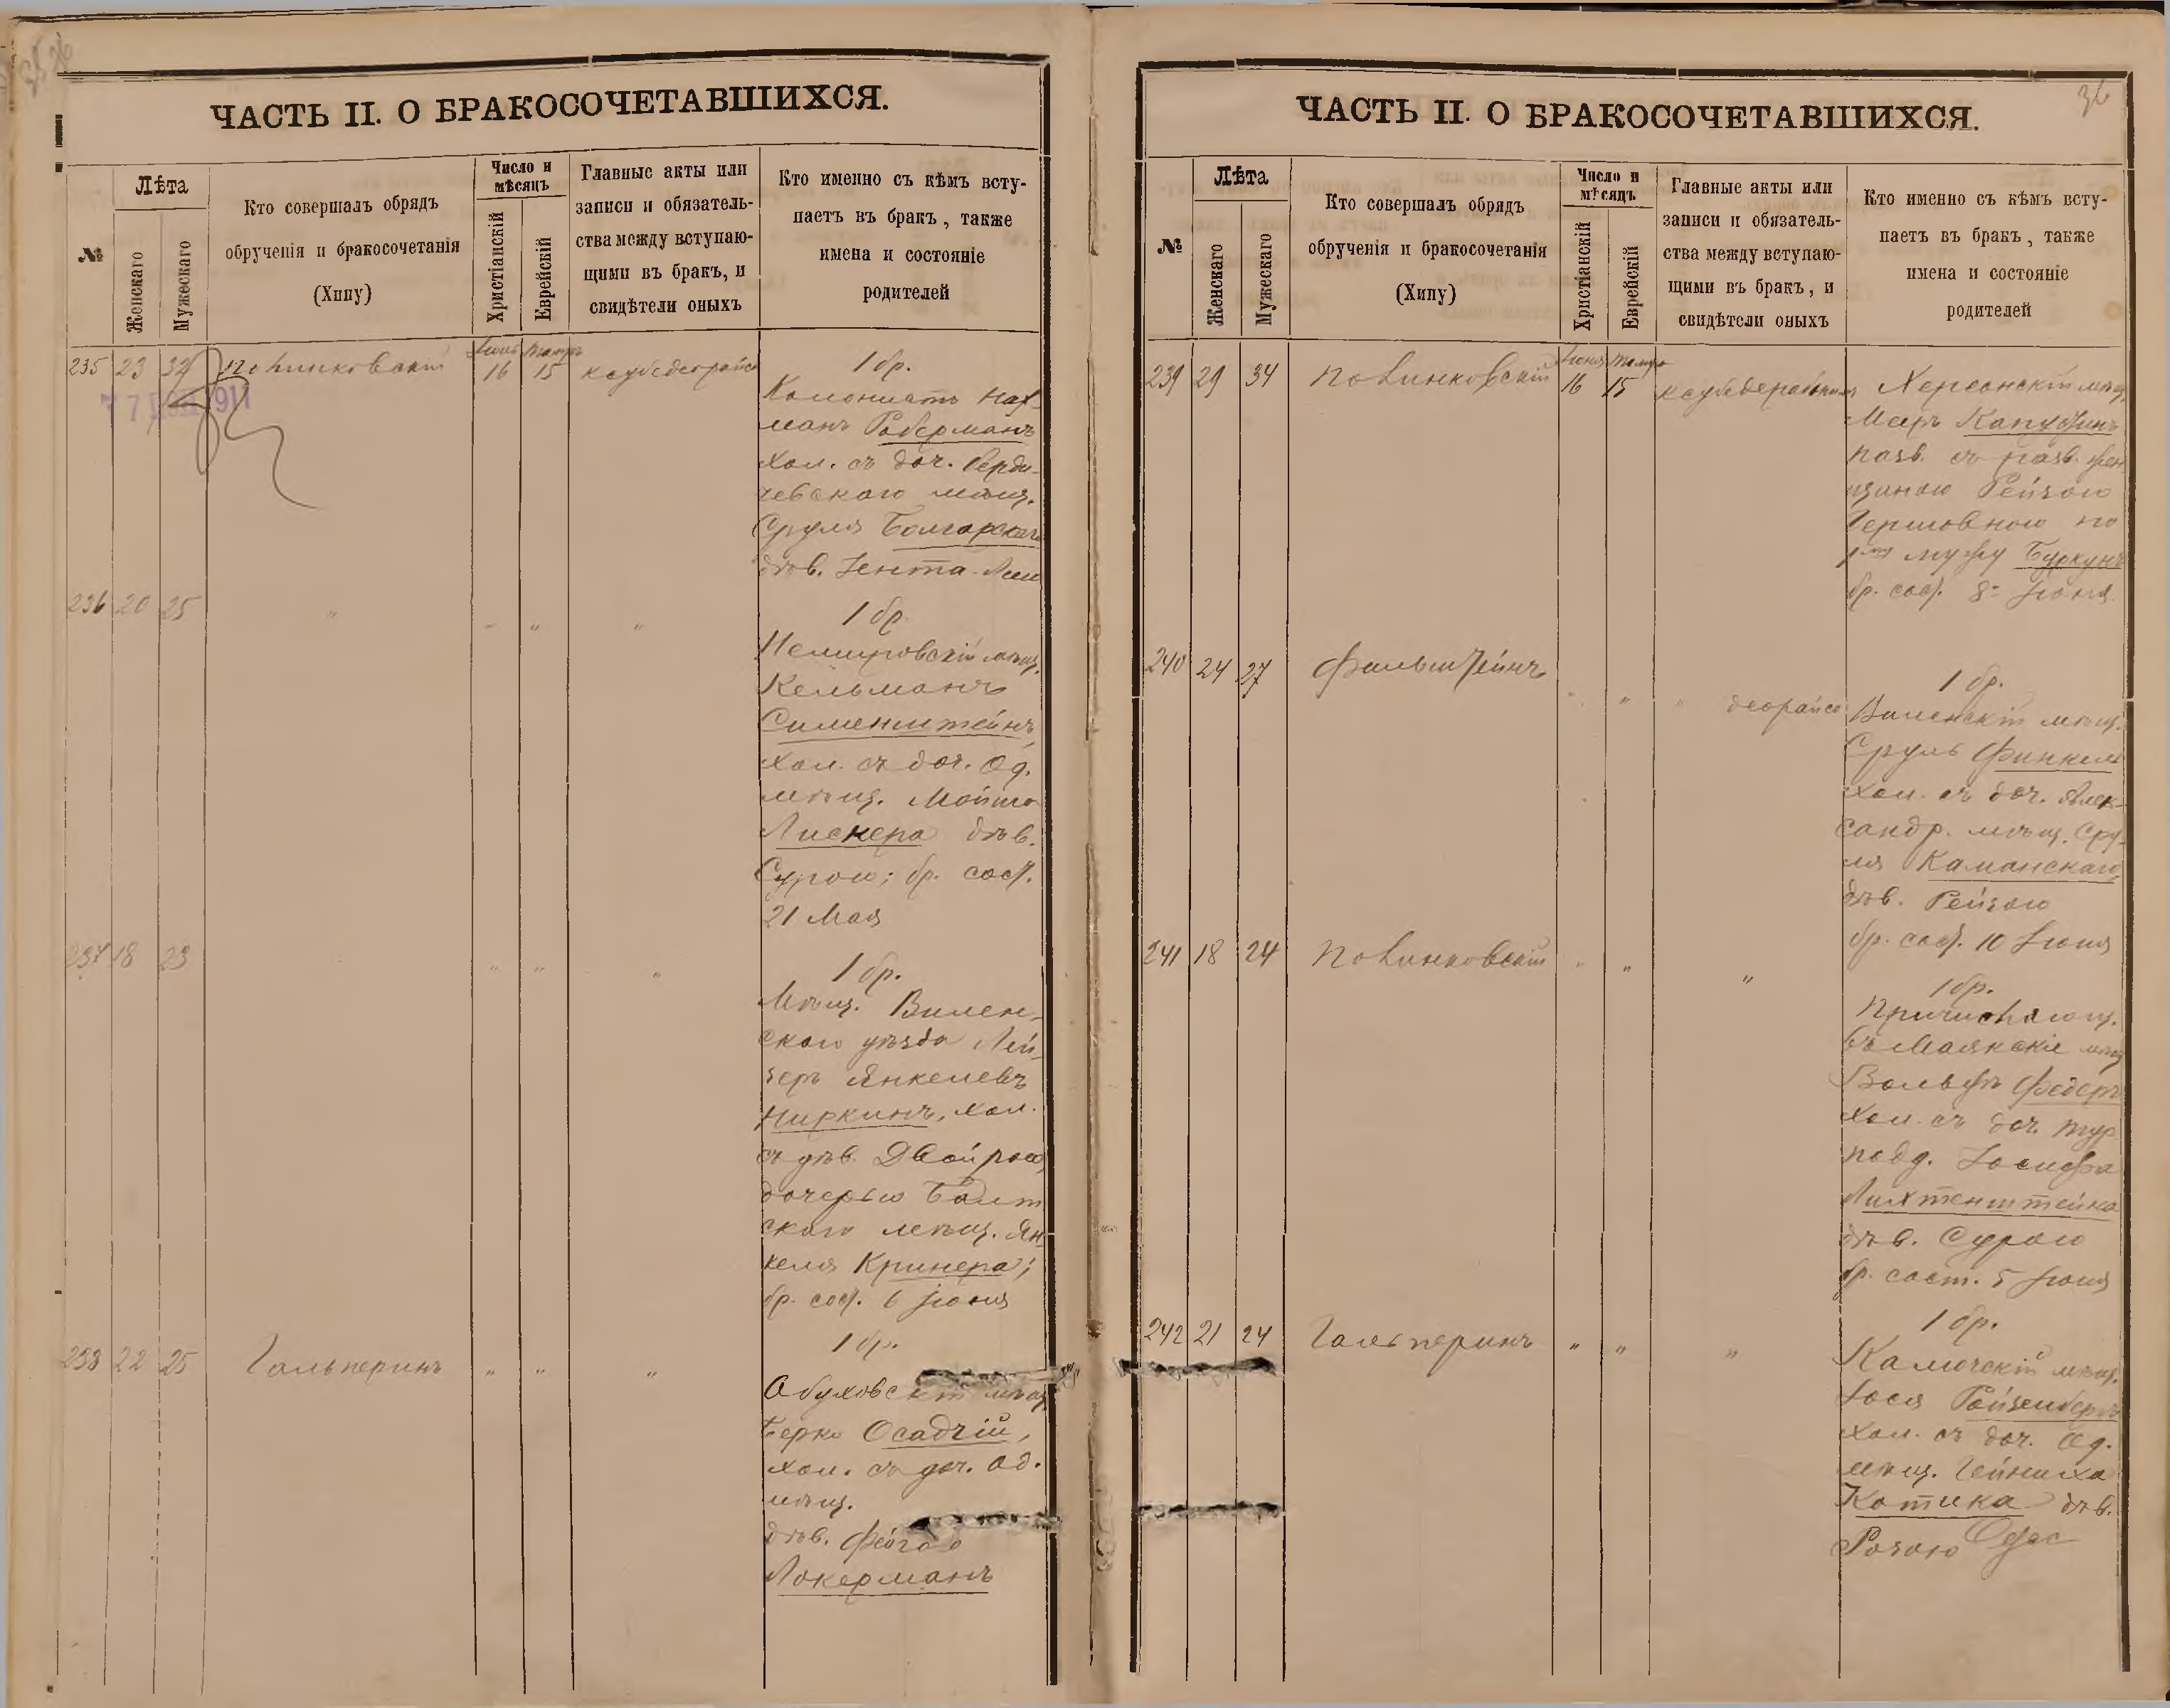 ЧАСТЬ II. О БРАКОСОЧЕТАВШИХСЯ.
№
Лѣта
Женскаго
Мужескаго
Кто совершалъ обрядъ
обрученія и бракосочетанія
(Хипу)
Число и
мѣсяцъ
Христіанскій
Еврейскій
Главные акты или
записи и обязатель-
ства между вступаю-
щими въ бракъ, и
свидѣтели оныхъ
Кто именно съ кѣмъ всту-
паетъ въ бракъ, также
имена и состояніе
родителей
235 23 32
16 15
1 бр.
Колонистъ Нах-
манъ Роберманъ
хол. съ доч. Берди-
чевскаго мѣщ.
Сруля Болгарскаго
дѣв. Ента-Леи
236 20 25 " " " "
1 бр.
Немировскій мѣщ.
Кельманъ
Сименштейнъ,
хол. съ доч. Од.
мѣщ. Мойше
Лиснера дѣв.
Сурою; бр. сост.
21 Мая
237 18 23 " " "
1 бр.
Мѣщ. Вилен-
скаго уѣзда Лей-
зеръ Янкелевъ
Ниркинъ, хол.
съ дѣв. Двойрою,
дочерью Балт
скаго мѣщ. Ян-
келя Кринера;
бр. сост. 6 Іюня
238 22 25 Гальперинъ " " "
1 бр.
Обуховскій мѣщ.
Берко Осадчій,
хол. съ доч. Од.
мѣщ.
дѣв. Фейгою
Локерманъ
ЧАСТЬ II. О БРАКОСОЧЕТАВШИХСЯ.
36
№
Лѣта
Женскаго
Мужескаго
Кто совершалъ обрядъ
обрученія и бракосочетанія
(Хипу)
Число и
мѣсяцъ
Христіанскій
Еврейскій
Главные акты или
записи и обязатель-
ства между вступаю-
щими въ бракъ, и
свидѣтели оныхъ
Кто именно съ кѣмъ всту-
паетъ въ бракъ, также
имена и состояніе
родителей
239 29 34 Полинковскій
16 15
Херсонскій мѣщ.
Мееръ Капузинъ
разв. съ разв. жен
щиною Рейзою
Гершовною по
1му мужу Буркунъ
бр. сост. 8 Іюня
240 24 27 Фальштейнъ " " деорайсо
1 бр.
Виленскій мѣщ.
Сруль Финкель
хол. съ доч. Алек-
сандр. мѣщ. Сру-
ля Каманскаго,
дѣв. Рейзою
бр. сост. 10 Іюня
241 18 24 Полинковскій " " "
1 бр.
Причисляющ.
въ Маякскіе мѣщ
Вольфъ Федеръ
хол. съ доч. тур.
подд. Іосифа
Лихтенштейна
дѣв. Сурою
бр. сост. 5 Іюня
242 21 24 Гальперинъ " " "
1 бр.
Іося Ройзенбергъ
хол. съ доч. Од.
мѣщ. Гейниха
Котика дѣв.
Розою